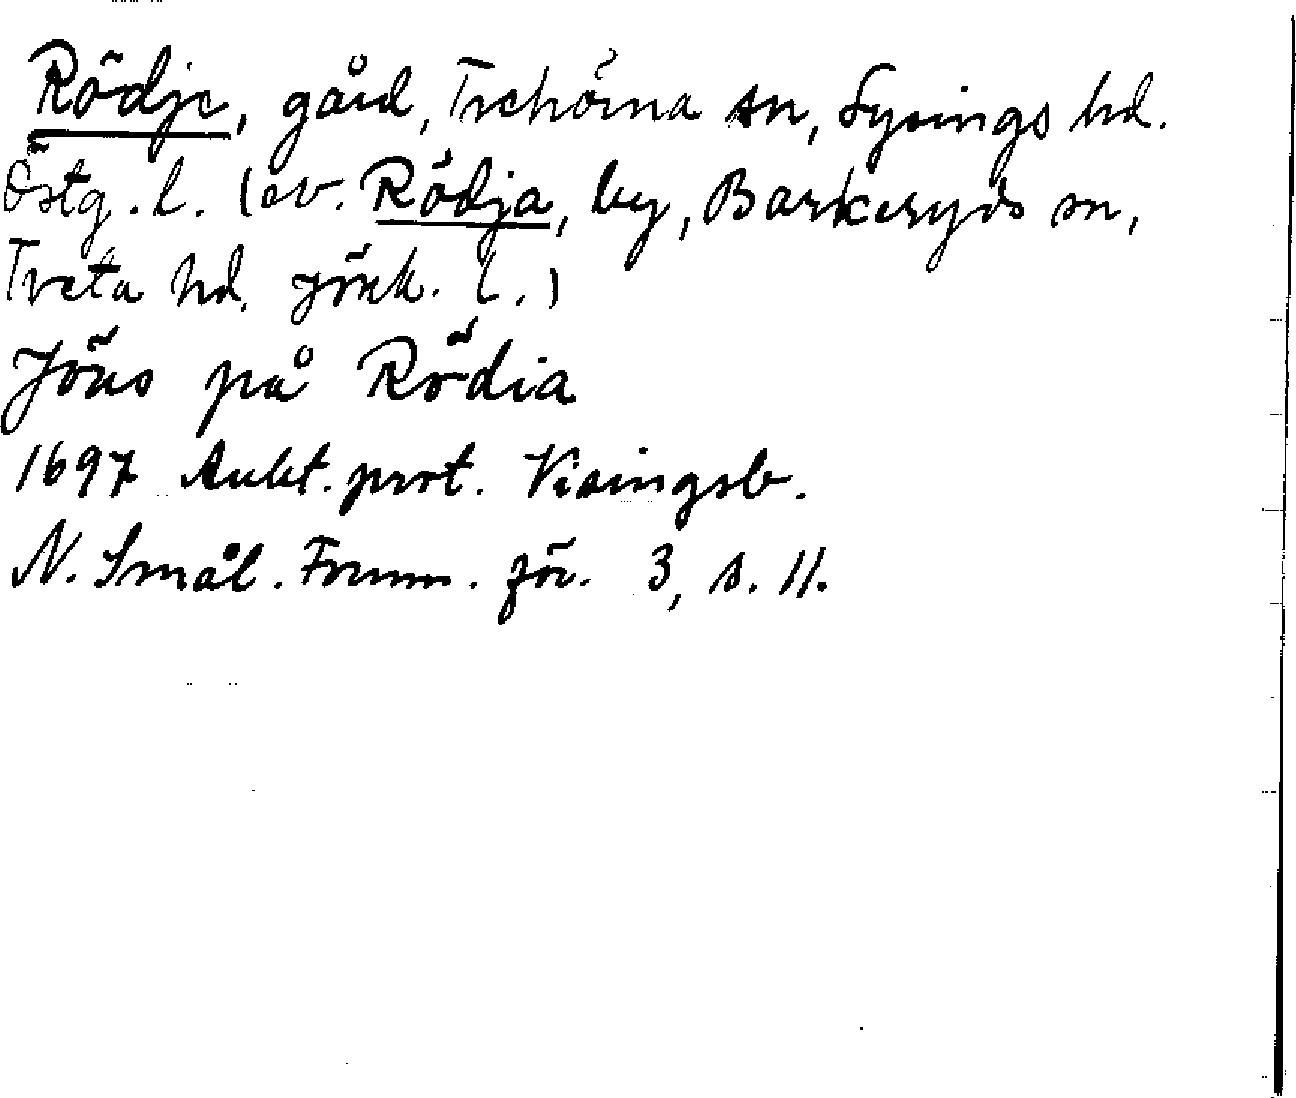 Rödje, gård, Trehörna sn, Lysings hd.
Östg. l. (ev. Rödja, by, Barkeryds sn,
Tveta hd. Jönk. l.)
Jöns på Rödia
1697 Aukt. prot. Visingsb.
N. Smål. Fornm. för. 3, s. 11.